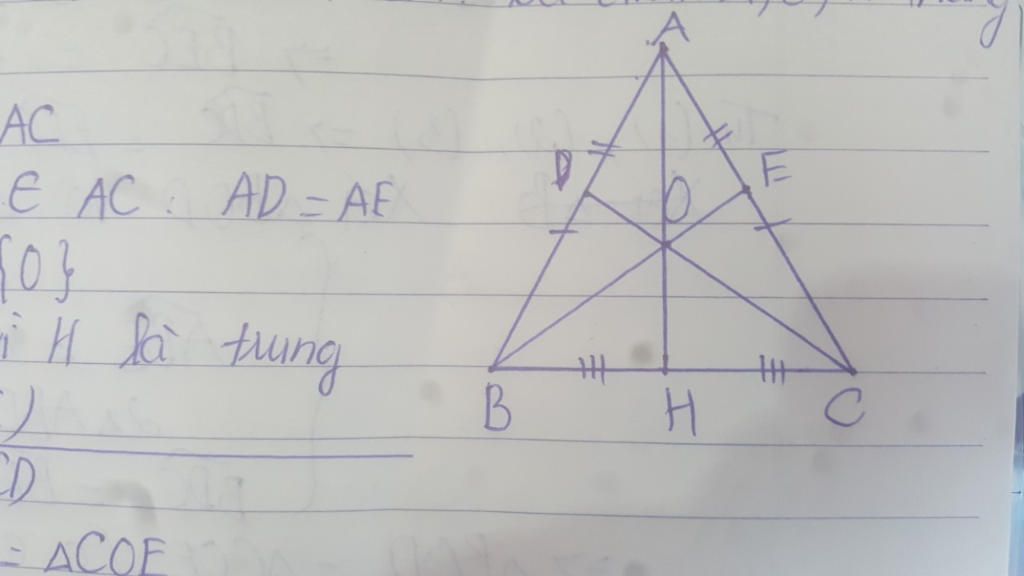 AC
E AC : AD = AE
{O}
H là trung
)
CD
= ΔCOE
A
D
E
O
B
H
C